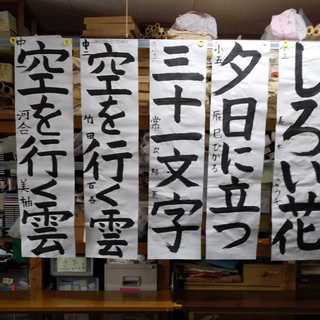 しろい花
小五
夕日に立つ
辰巳ひかる
三十一文字
中二
空を行く雲
竹田
中一
空を行く雲
河合 美柚